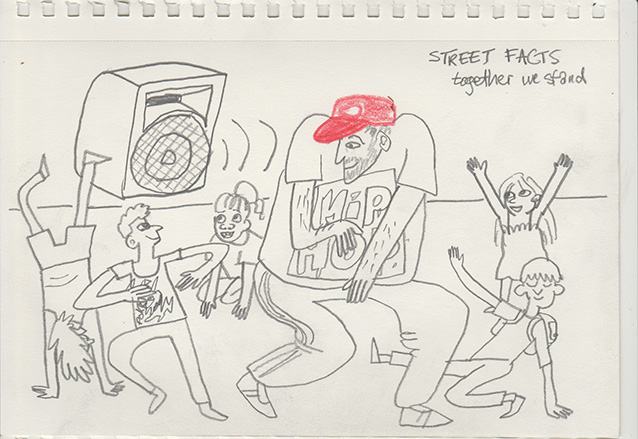 STREET FACTS
together we stand
HiP